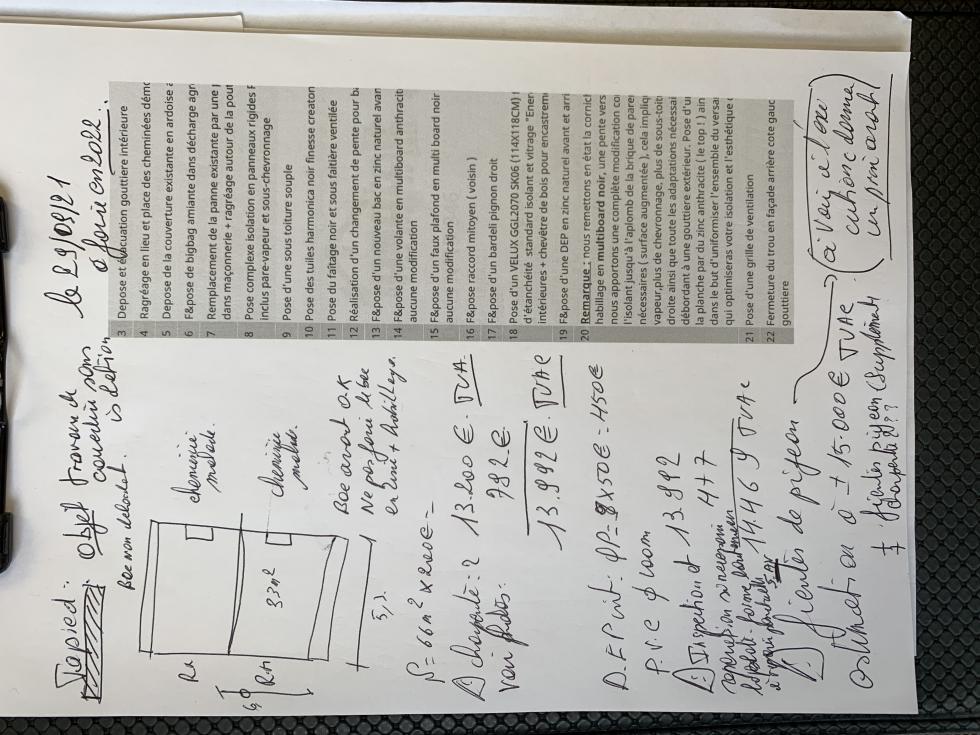 Tapied: objet travaux de
couverture sans
isolation
le 29/09/21
à faire en 2022.
Bac non debordt.
cheminée
malade.
cheminée
malade.
RN
33m²
5,5
Bac avant O.K
Ne pas faire le bac
en zinc + habillage.
S = 66m² x 200€ =
charpente : ? 13.200 €. TVAC
voir photos: 792 €.
13.992 €. TVAC
D.E.P int. DP = 9x50€ = 450€
P.V.C ⌀ 100m
Inspection et 13.992
477
14.469 TVAC
fientes de pigeon
estimation à ± 15.000€ TVAC
(à voir si t'es ou
supplément
charpente ??
3 Depose et évacuation gouttière intérieure
4 Ragréage en lieu et place des cheminées démo
5 Depose de la couverture existante en ardoise a
6 F&pose de bigbag amiante dans décharge agr
7 Remplacement de la panne existante par une p
dans maçonnerie + ragréage autour de la pout
8 Pose complexe isolation en panneaux rigides P
Inclus pare-vapeur et sous-chevronnage
9 Pose d'une sous toiture souple
10 Pose des tuiles harmonica noir finesse creaton
11 Pose du faîtage noir et sous faitière ventilée
12 Réalisation d'un changement de pente pour ba
13 F&pose d'un nouveau bac en zinc naturel avan
14 F&pose d'une volante en multiboard anthracit
aucune modification
15 F&pose d'un faux plafond en multi board noir
aucune modification
16 F&pose raccord mitoyen ( voisin )
17 F&pose d'un bardeli pignon droit
18 Pose d'un VELUX GGL2070 SK06 (114X118CM) l
d'étanchéité standard isolant et vitrage "Ener
intérieures + chevêtre de bois pour encastreme
19 F&pose d'une DEP en zinc naturel avant et arri
20 Remarque : nous remettons en état la cornich
habillage en multiboard noir, une pente vers
nous apportons une complète modification co
l'isolant jusqu'à l'aplomb de la brique de pare
nécessaires ( surface augmentée ), cela impliq
vapeur,plus de chevronnage, plus de sous-toit
droite ainsi que toute les adaptations nécessai
débordant à une gouttière extérieur. Pose d'u
la planche par du zinc anthracite ( le top ! ) ain
dans le but d'uniformiser l'ensemble du versa
qui optimiseras votre isolation et l'esthétique
21 Pose d'une grille de ventilation
22 Fermeture du trou en façade arrière cote gauc
gouttière